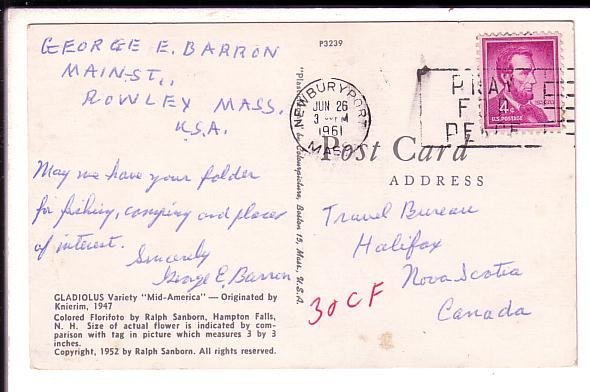 GEORGE E. BARRON
MAIN-ST.,
ROWLEY MASS.
U.S.A.
May we have your folder
for fishing, camping and places
of interest.
Sincerely
George E, Barron
GLADIOLUS Variety "Mid-America" — Originated by
Knierim, 1947
Colored Florifoto by Ralph Sanborn, Hampton Falls,
N. H. Size of actual flower is indicated by com-
parison with tag in picture which measures 3 by 3
inches.
Copyright, 1952 by Ralph Sanborn. All rights reserved.
by Colourpicture, Boston 15, Mass., U.S.A.
P3239
NEWBURYPORT
JUN 26
3 PM
1961
MASS.
PRAY
FOR
PEACE
4¢
U.S. POSTAGE
Post Card
ADDRESS
Travel Bureau
Halifax
Nova Scotia
Canada
30 CF